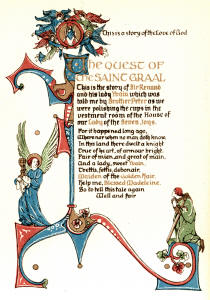 This is a story of the Love of God
THE QUEST OF
THE SAINT GRAAL
This is the story of Sir Renaud
and his lady Yvain which was
told me by Brother Peter as we
were polishing the cups in the
vestment room of the House of
our Lady of the Seven Joys.
For it happened long ago,
Where nor when no man doth know.
In this land there dwelt a knight
True of heart, of armour bright.
Fair of mien, and great of main.
And a lady, sweet Yvain.
Tretis, fetis, debonair,
Maiden of the Golden Hair.
Help me, Blessed Madeleine.
So to tell this tale again
Well and fair